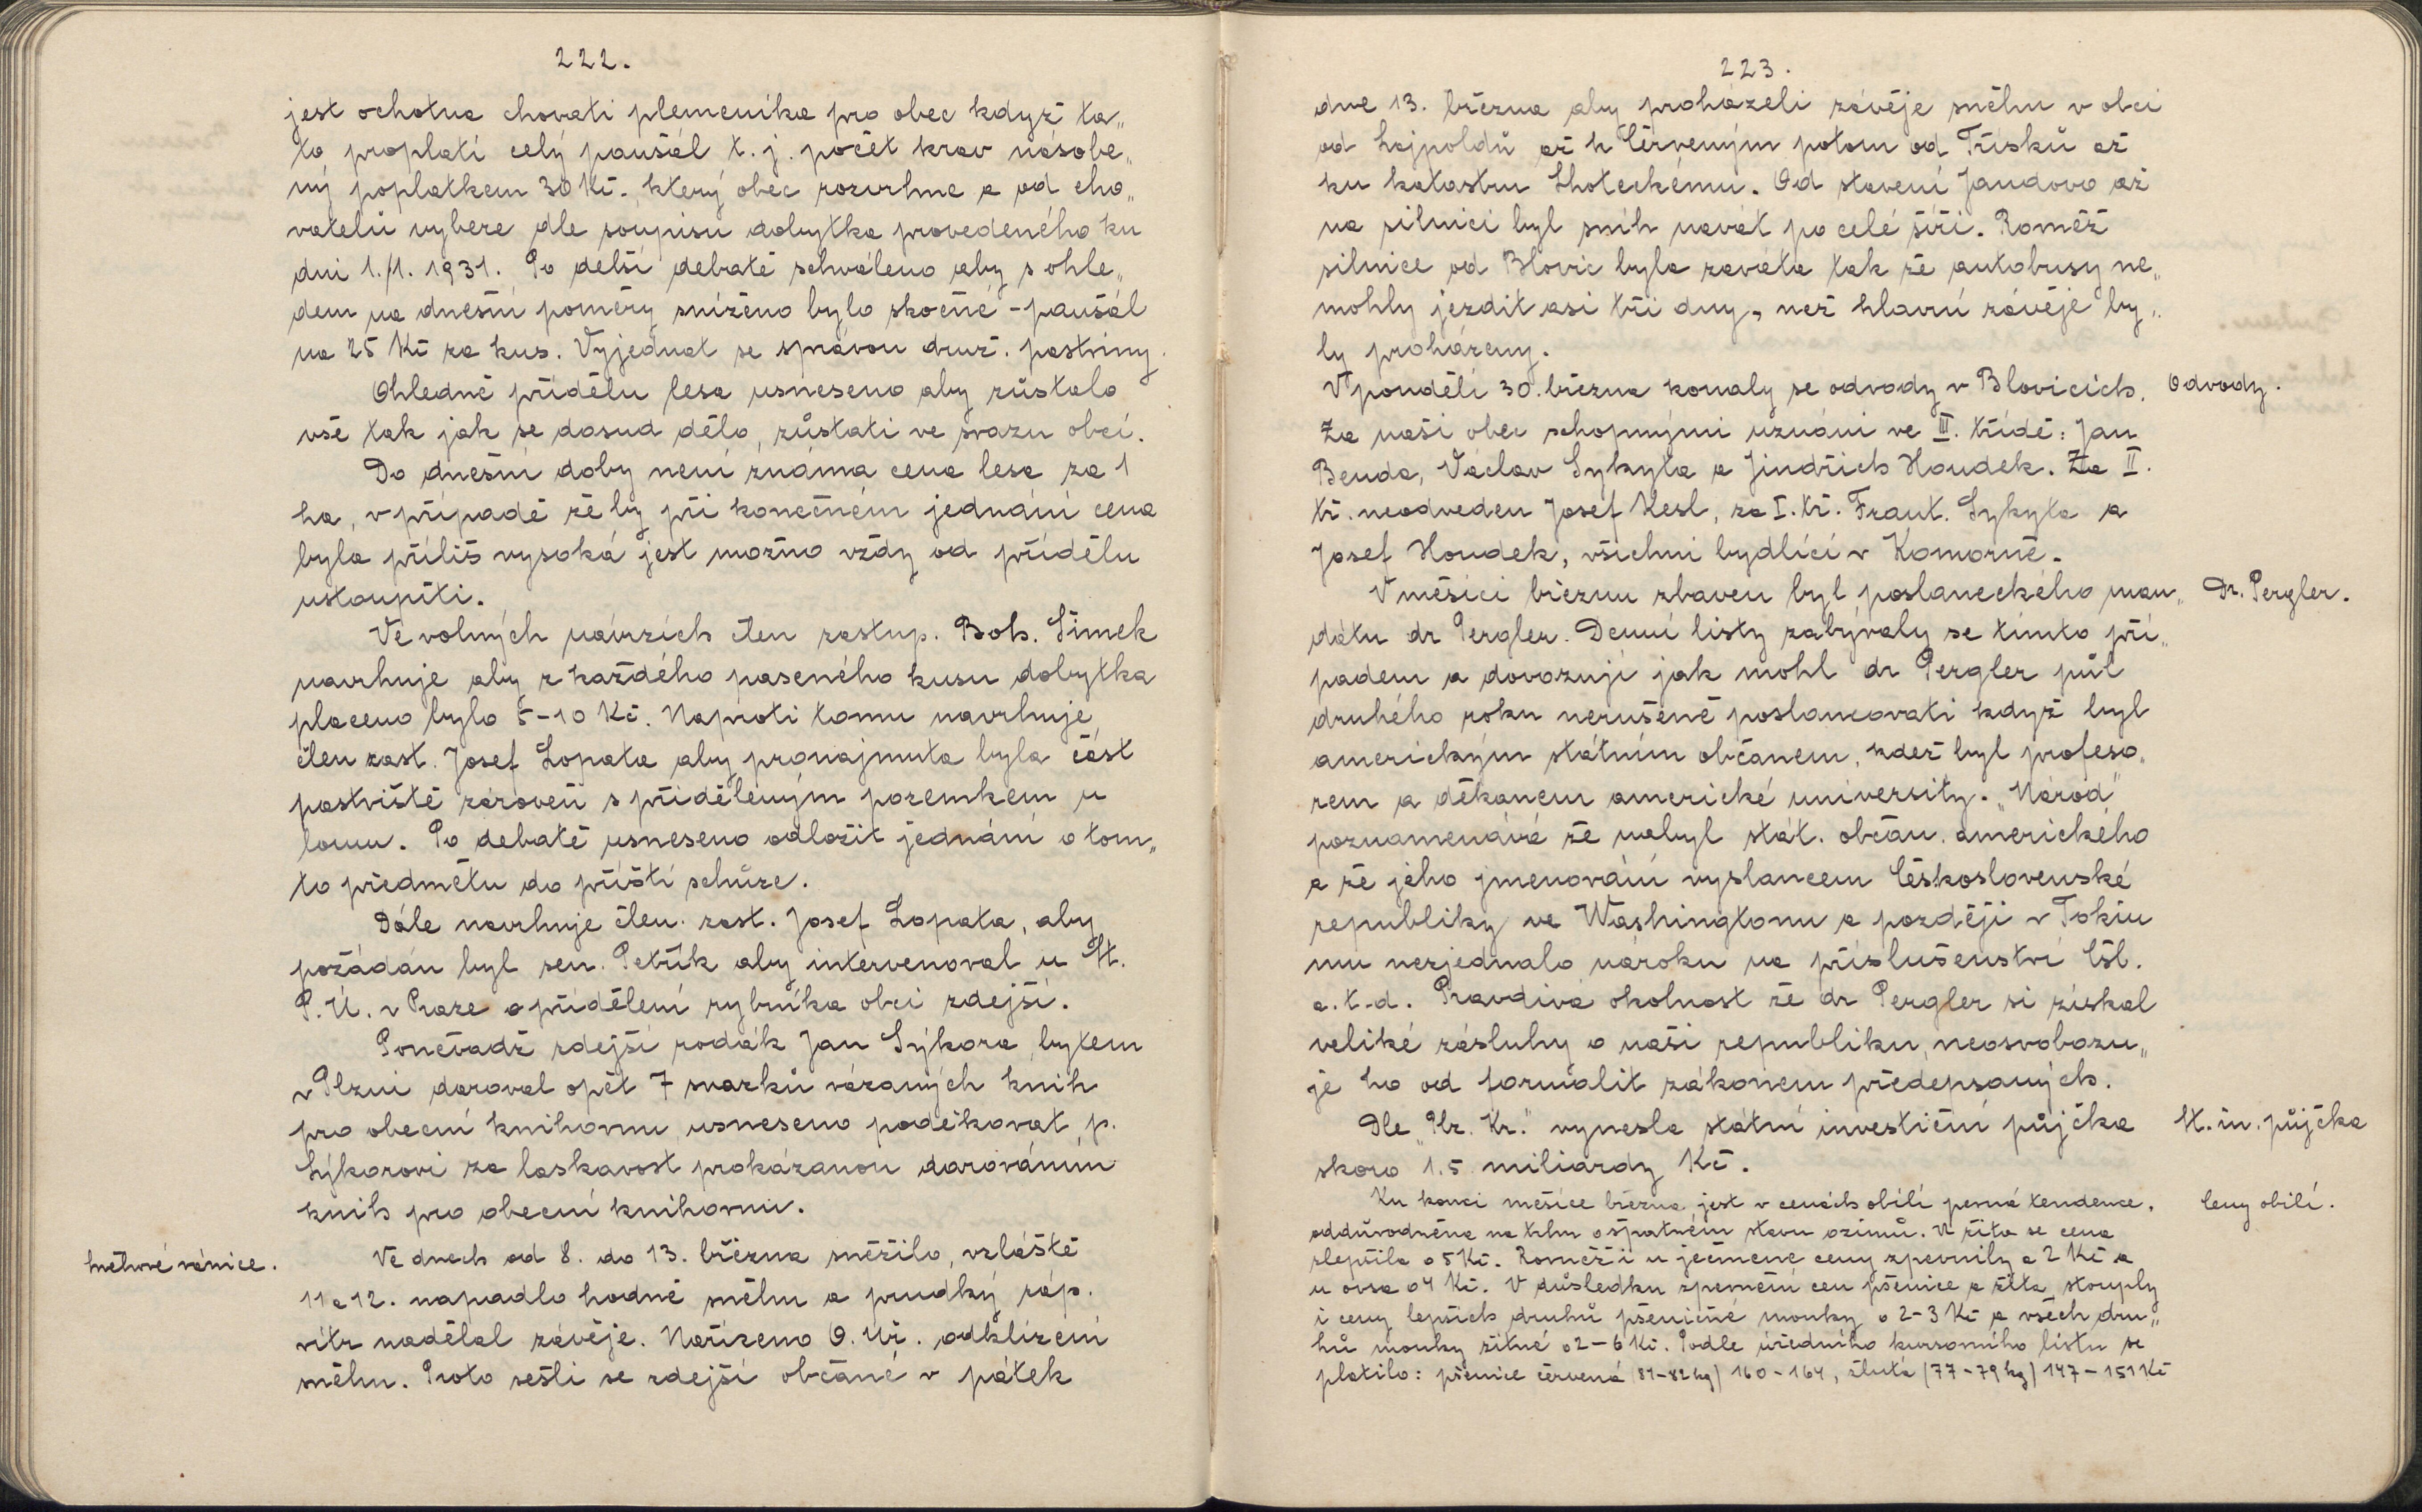 222.
jest ochotna chovati plemeníka pro obec když ta„
to proplatí celý paušál t. j. počet krav násobe„
ný poplatkem 30 Kč. který obec rozvrhne a od cho„
vatelů vybere dle soupisu dobytka provedeného ku
dni 1./1. 1931. Po delší debatě schváleno aby s ohle„
dem na dnešní poměry sníženo bylo skočné - paušál
na 25 Kč za kus. Vyjednat se správou druž. pastviny.
Ohledně přídělu lesa usneseno aby zůstalo
vše tak jak se dosud dělo, zůstati ve svazu obcí.
Do dnešní doby není známa cena lesa za 1
ha, v případě že by při konečném jednání cena
byla příliš vysoká jest možno vždy od přídělu
ustoupiti.
Ve volných návrzích člen zastup. Boh. Šimek
navrhuje aby z každého paseného kusu dobytka
placeno bylo 5-10 Kč. Naproti tomu navrhuje
člen zast. Josef Lopata aby pronajmuta byla část
pastviště zároveň s přiděleným pozemkem u
lomu. Po debatě usneseno odložit jednání o tom„
to předmětu do příští schůze.
Dále navrhuje člen. zast. Josef Lopata, aby
požádán byl sen. Petřík aby intervenoval u St.
P. Ú. v Praze o přidělení rybníka obci zdejší.
Poněvadž zdejší rodák Jan Sýkora, bytem
v Plzni daroval opět 7 svazků vázaných knih
pro obecní knihovnu usneseno poděkovat p.
Sýkorovi za laskavost prokázanou darováním
knih pro obecní knihovnu.
Sněhové vánice.
Ve dnech od 8. do 13. března sněžilo, vzláště
11 a 12. napadlo hodně sněhu a prudký záp.
vítr nadělal závěje. Nařízeno O. Úř. odklízení
sněhu. Proto sešli se zdejší občané v pátek
223.
dne 13. března aby proházeli závěje sněhu v obci
od Lajpoldů až k Červeným potom od Třísků až
ku katastru Lhoteckému. Od stavení Jandovo až
na silnici byl sníh navát po celé šíři. Roměž
silnice od Blovic byla zaváta tak že autobusy ne„
mohly jezdit asi tři dny, než hlavní závěje by„
ly proházeny.
V pondělí 30. března konaly se odvody v Blovicích.
Odvody.
Za naši obec schopnými uznáni ve III. třídě: Jan
Benda, Václav Sykyta a Jindřich Houdek. Za II.
tř. neodveden Josef Kesl, za I. tř. Frant. Sykyta a
Josef Houdek, všichni bydlící v Komorně.
V měsíci březnu zbaven byl poslaneckého man„
Dr. Pergler.
dátu dr Pergler. Denní listy zabývaly se tímto pří„
padem a dovozují jak mohl dr Pergler půl
druhého roku nerušeně poslancovati když byl
americkým státním občanem, kdež byl profeso„
rem a děkanem americké university. „Národ"
poznamenává že nabyl stát. občan. amerického
a že jeho jmenování vyslancem Československé
republiky ve Washingtonu a později v Tokiu
mu nezjednalo nároku na příslušenství čsl.
a. t. d. Pravdivá okolnost že dr Pergler si získal
veliké zásluhy o naši republiku, neosvobozu„
je ho od formalit zákonem předepsaných.
Dle „Plz. Kr." vynesla státní investiční půjčka
St. in. půjčka
skoro 1.5 miliardy Kč.
Ku konci měsíce března jest v cenách obilí pevná tendence,
Ceny obilí.
oddůvodněna na trhu o špatném stavu ozimů. U žita se cena
zlepšila o 5 Kč. Roměž i u ječmene ceny zpevnily o 2 Kč a
u ovsa o 4 Kč. V důsledku zpevnění cen pšenice a žita stouply
i ceny lepších druhů pšeničné mouky o 2-3 Kč a všech dru„
hů mouky žitné o 2-6 Kč. Podle úředního kursovního listu se
platilo: pšenice červená (81-82 kg) 160-164, žlutá (77-79 kg) 147-151 Kč